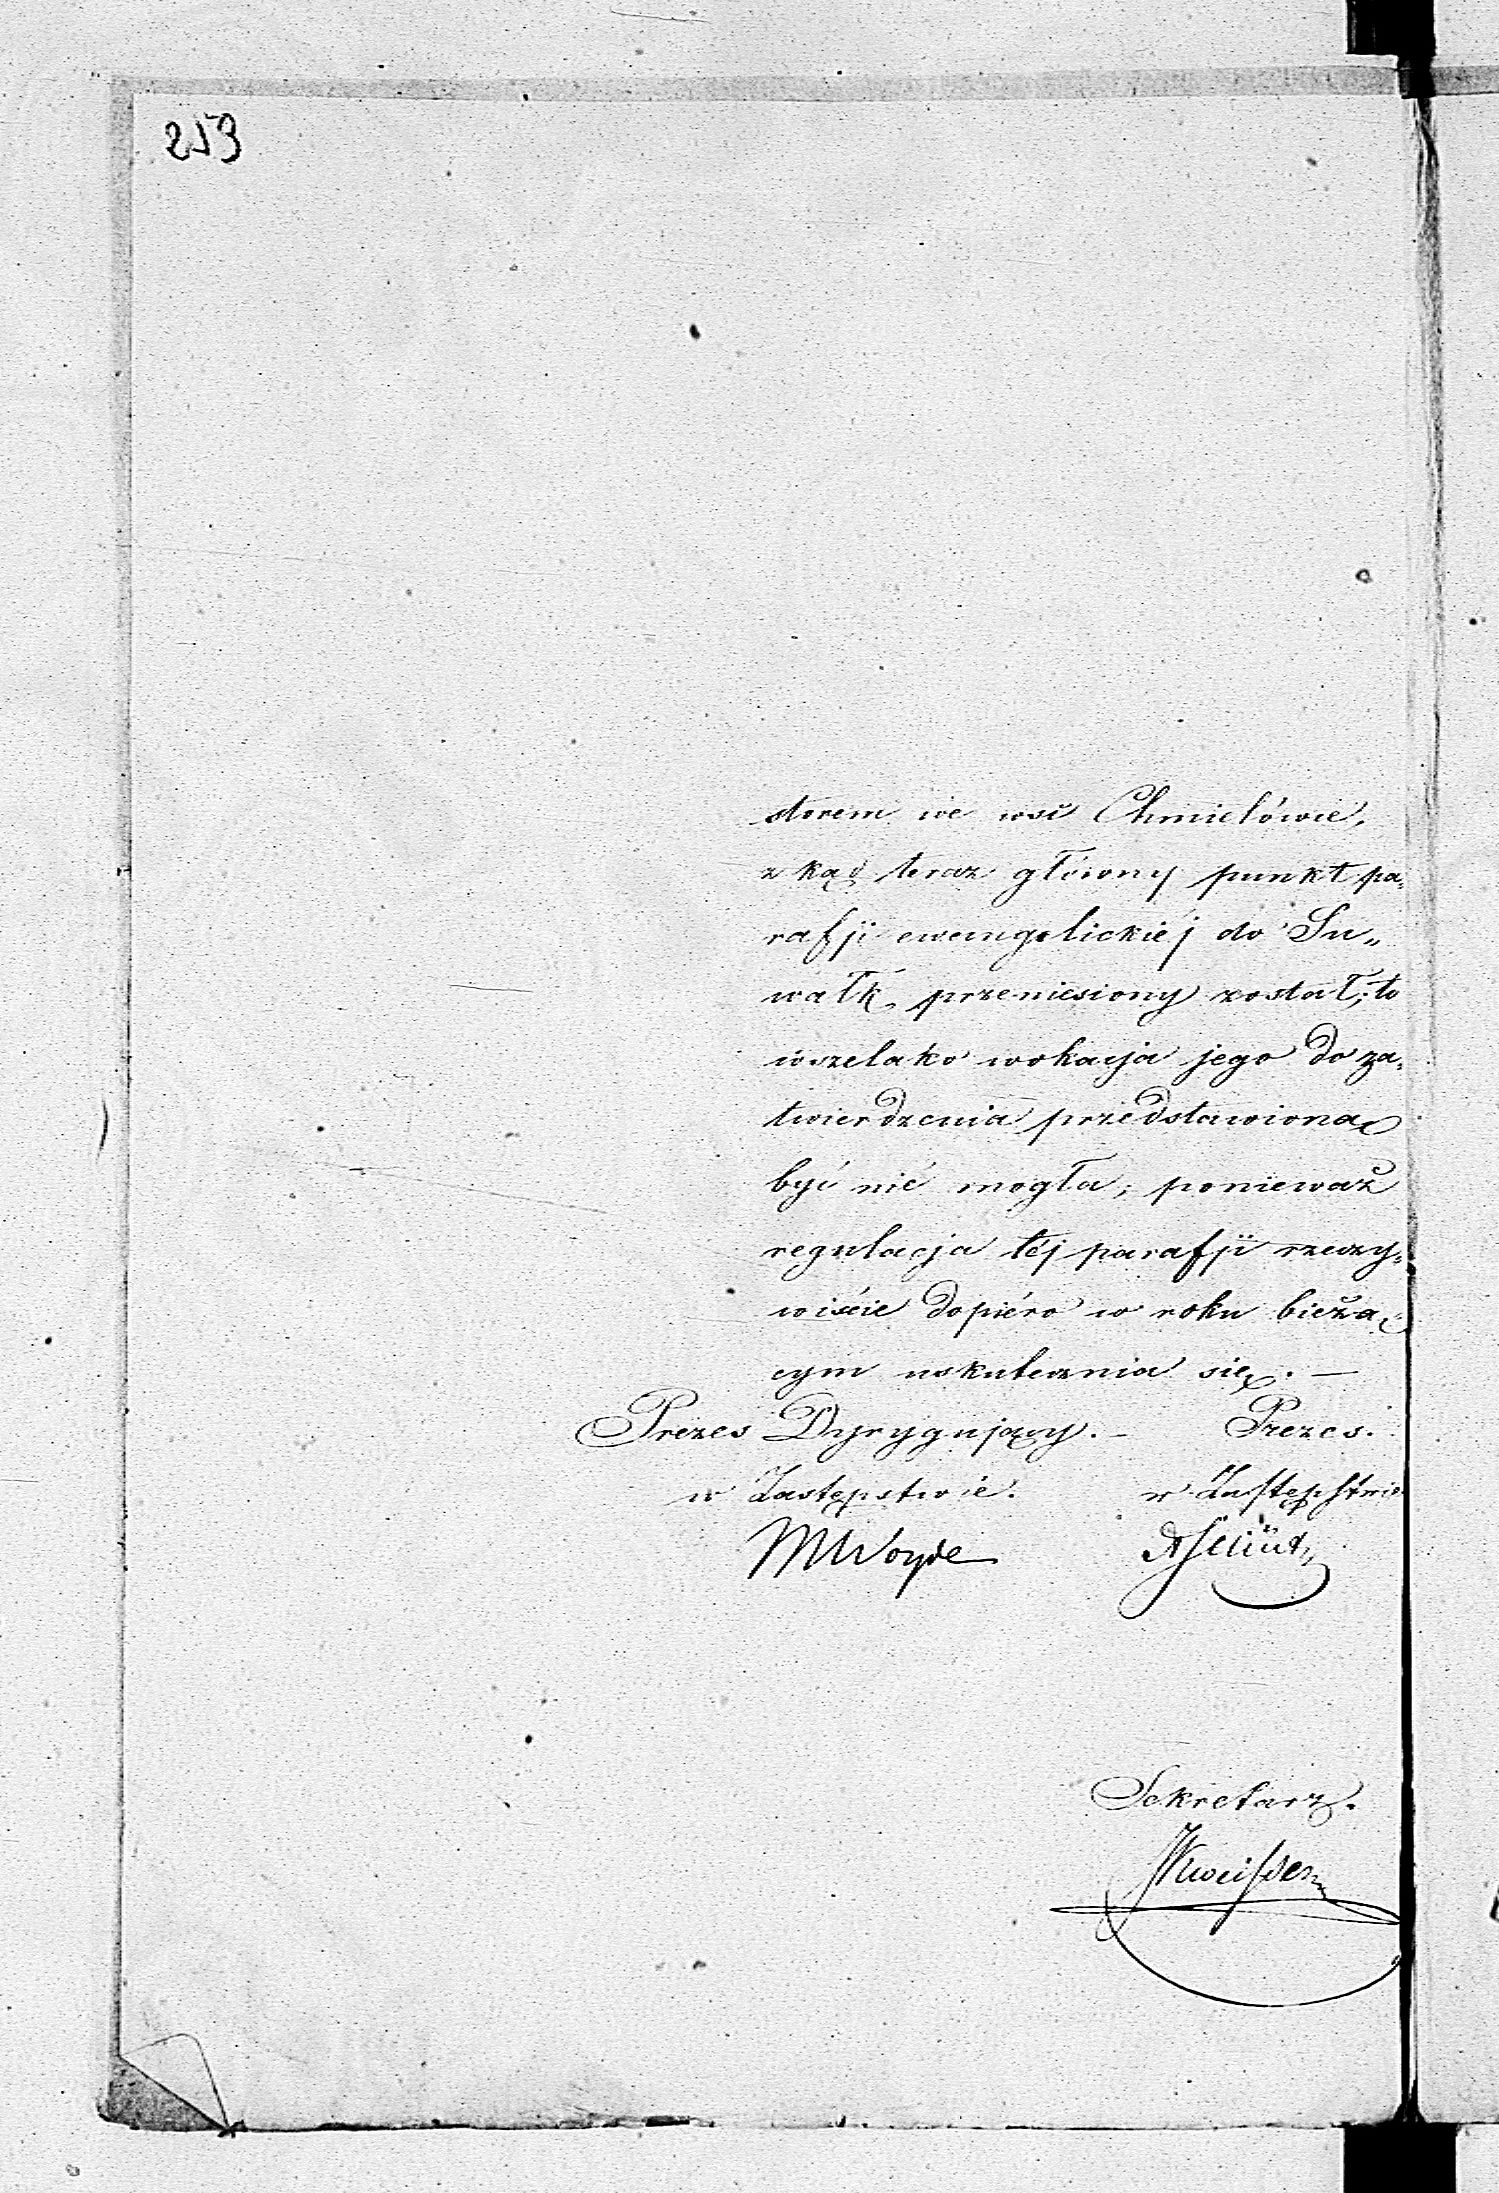 213
storem we wsi Chmielówie,
z kąd teraz główny punkt pa-
rafji ewangelickiéj do Su„
wałk przeniesiony został; to
wszelako wokacja jego do za-
twierdzenia przedstawioną
być nie mogła, ponieważ
regulacja téj parafji rzeczy-
wiście dopiéro w roku bieżą-
cym uskutecznia się. —
Prezes Dyrygujący. – Prezes.
w Zastępstwie. w Zastępstwie
MWoyde
Sekretarz.